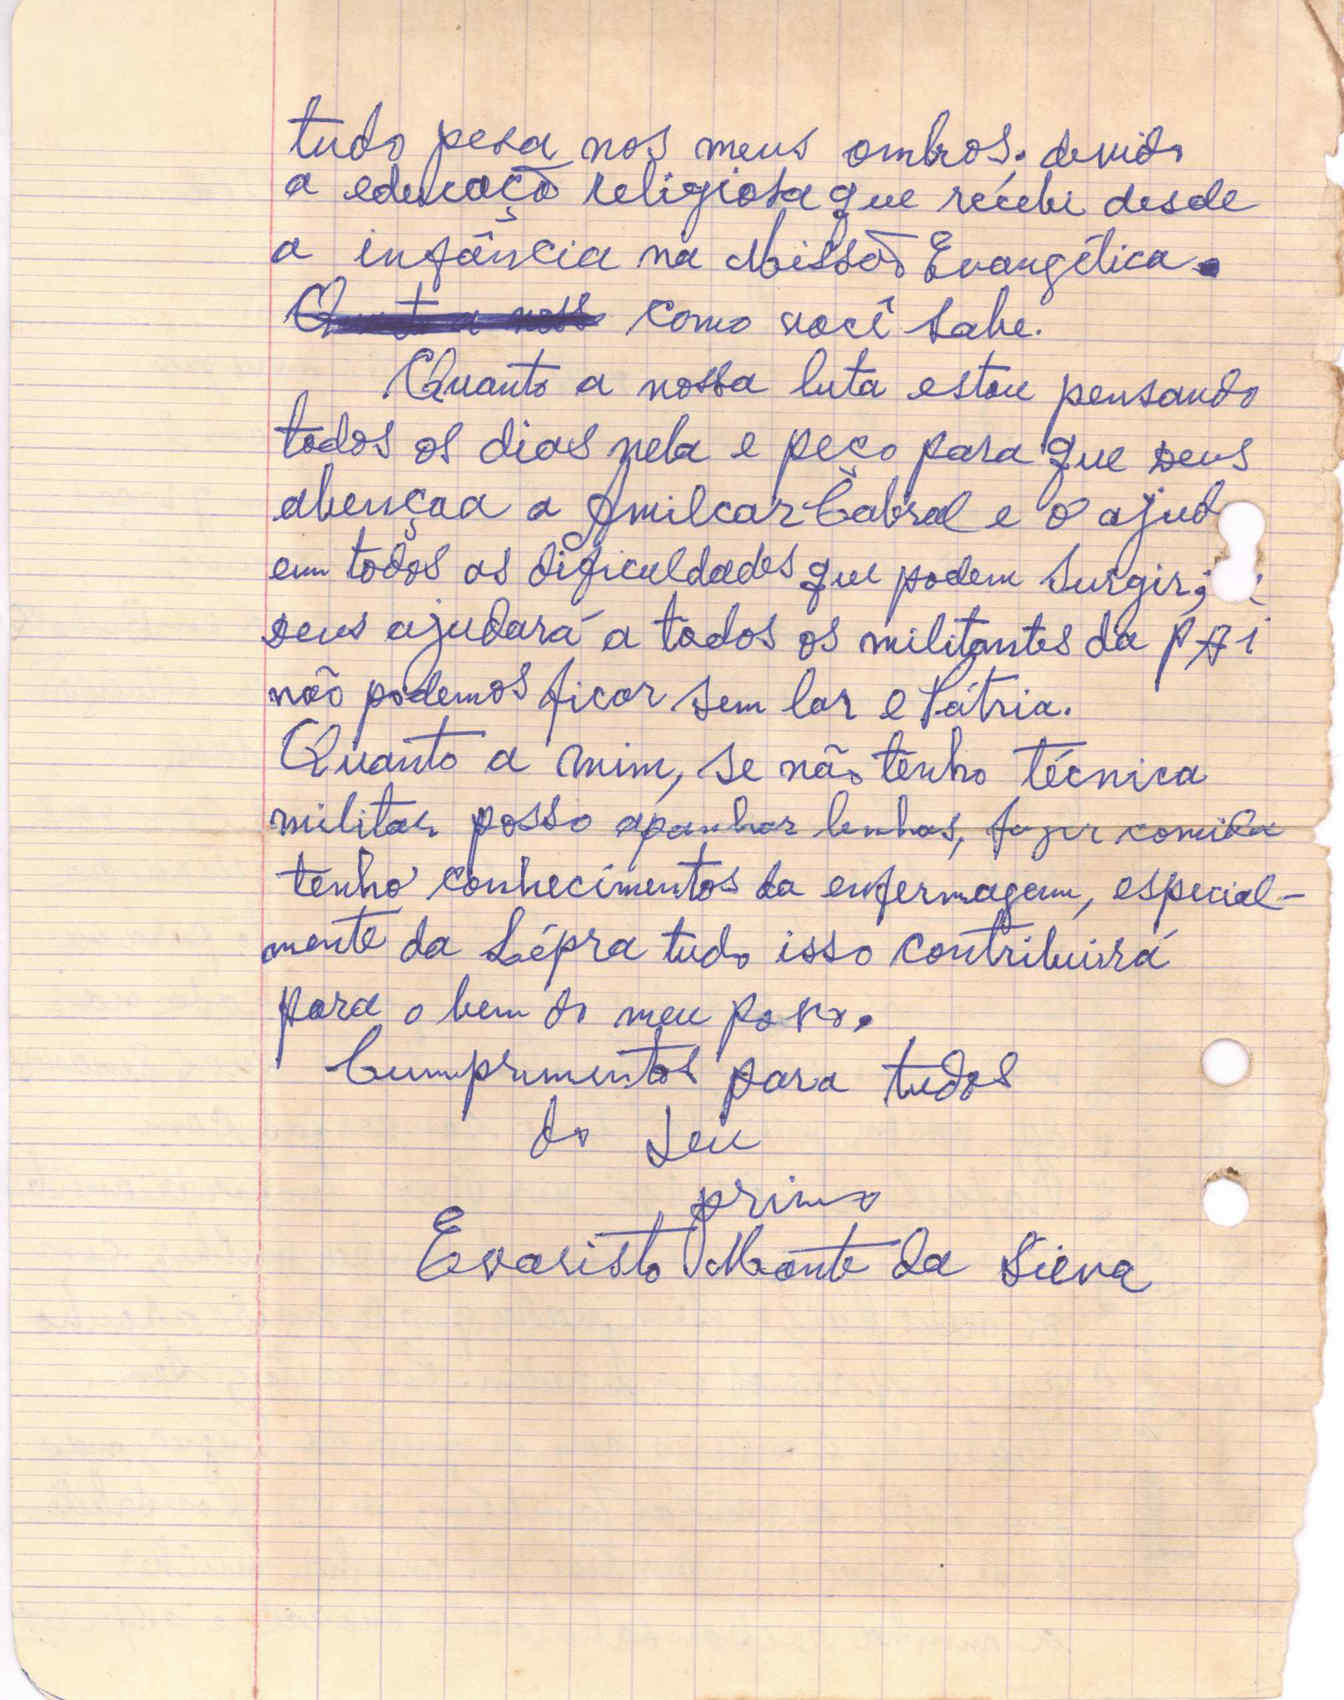 tudo pesa nos meus ombros. devido
a educação religiosa que recebi desde
a infância na Missão Evangélica.
como você sabe.
Quanto a nossa luta estou pensando
todos os dias nela e peço para que Deus
abençoa a Amilcar Cabral e o ajud
em todos as dificuldades que podem surgir;
Deus ajudará a todos os militantes da PAI
não podemos ficar sem lar e Pátria.
Quanto a mim, se não tenho técnica
militar posso apanhar lenhas, fazer comida
tenho conhecimentos da enfermagem, especial-
mente da Lépra tudo isso contribuirá
para o bem do meu povo.
Cumprimentos para tudos
do seu
primo
Evaristo Monte da Silva